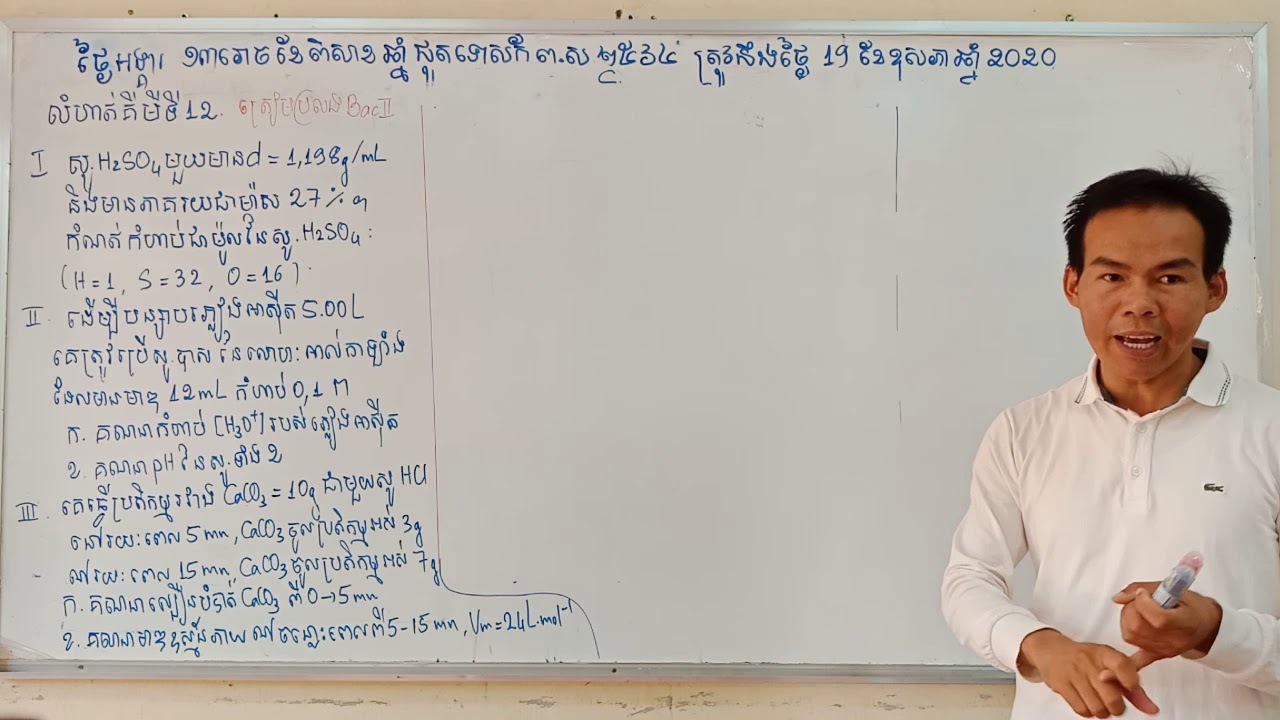 ថ្ងៃអង្គារ ១៣រោច ខែពិសាខ ឆ្នាំជូតទោស័ក ព.ស ២៥៦៤ ត្រូវនឹងថ្ងៃ 19 ខែឧសភា ឆ្នាំ 2020
លំហាត់គីមីទី 12. ត្រៀមប្រលង Bac II
I សូ. H2SO4 មួយមាន d = 1,198g/mL
និងមានភាគរយជាម៉ាស 27%។
កំណត់កំហាប់ជាម៉ូលនៃសូ. H2SO4:
(H = 1, S = 32, O = 16)
II ដើម្បីបន្សាបភ្លៀងអាស៊ីត 5.00L
គេត្រូវប្រើសូ.បាសនៃលោហៈអាល់កាឡាំង
ដែលមានមាឌ 12mL កំហាប់ 0,1 M
ក. គណនាកំហាប់ [H3O+] របស់ភ្លៀងអាស៊ីត
ខ. គណនា pH នៃសូ.ទាំង 2
III គេធ្វើប្រតិកម្មរវាង CaCO3 = 10g ជាមួយសូ HCl
នៅរយៈពេល 5 mn, CaCO3 ចូលប្រតិកម្មអស់ 3g
ណរយៈពេល 15 mn, CaCO3 ចូលប្រតិកម្មអស់ 7g
ក. គណនាល្បឿនបំបាត់ CaCO3 ពី 0-5 mn
ខ. គណនាមាឌឧស្ម័នភាយ ណចន្លោះពេលពី 5-15 mn, Vm = 24L.mol-1